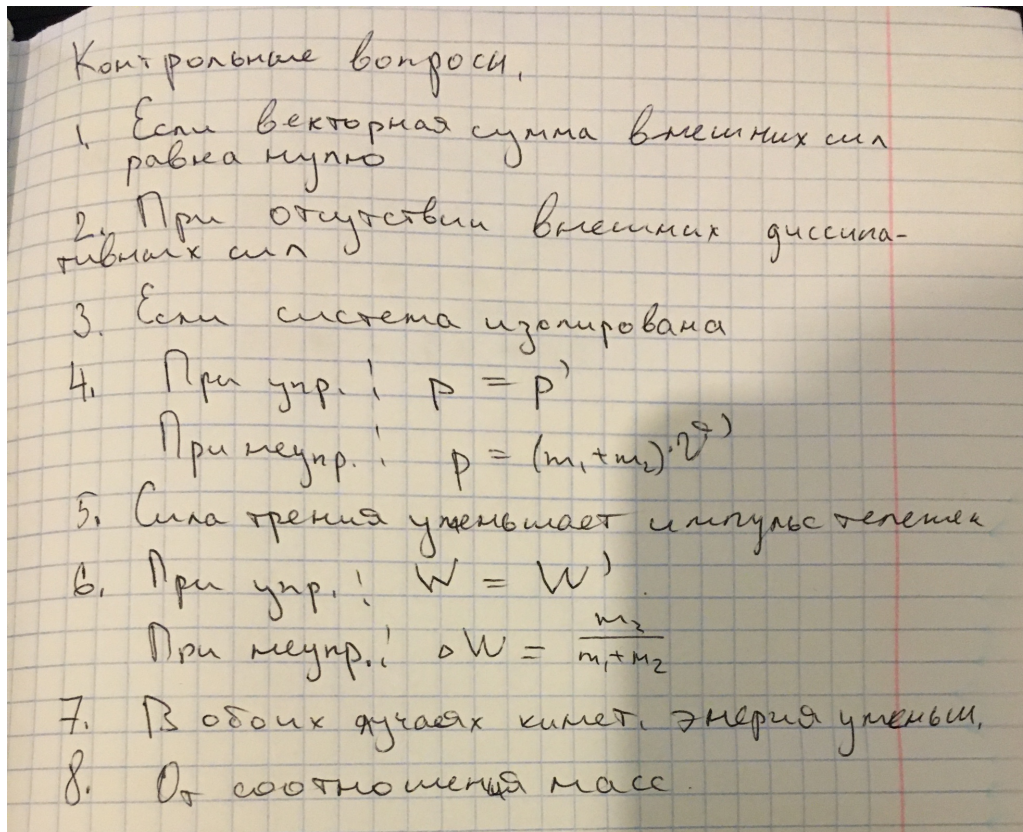 Контрольные вопросы.
1. Если векторная сумма внешних сил
равна нулю
2. При отсутствии внешних диссипа-
тивных сил
3. Если система изолирована
4. При упр.: p = p'
При неупр.: p = (m₁+m₂)·v')
5. Сила трения уменьшает импульс тележек
6. При упр.: W = W'
При неупр.: ΔW = m₂/(m₁+m₂)
7. В обоих лучаях кинет. энерия уменьш.
8. От соотношения масс.